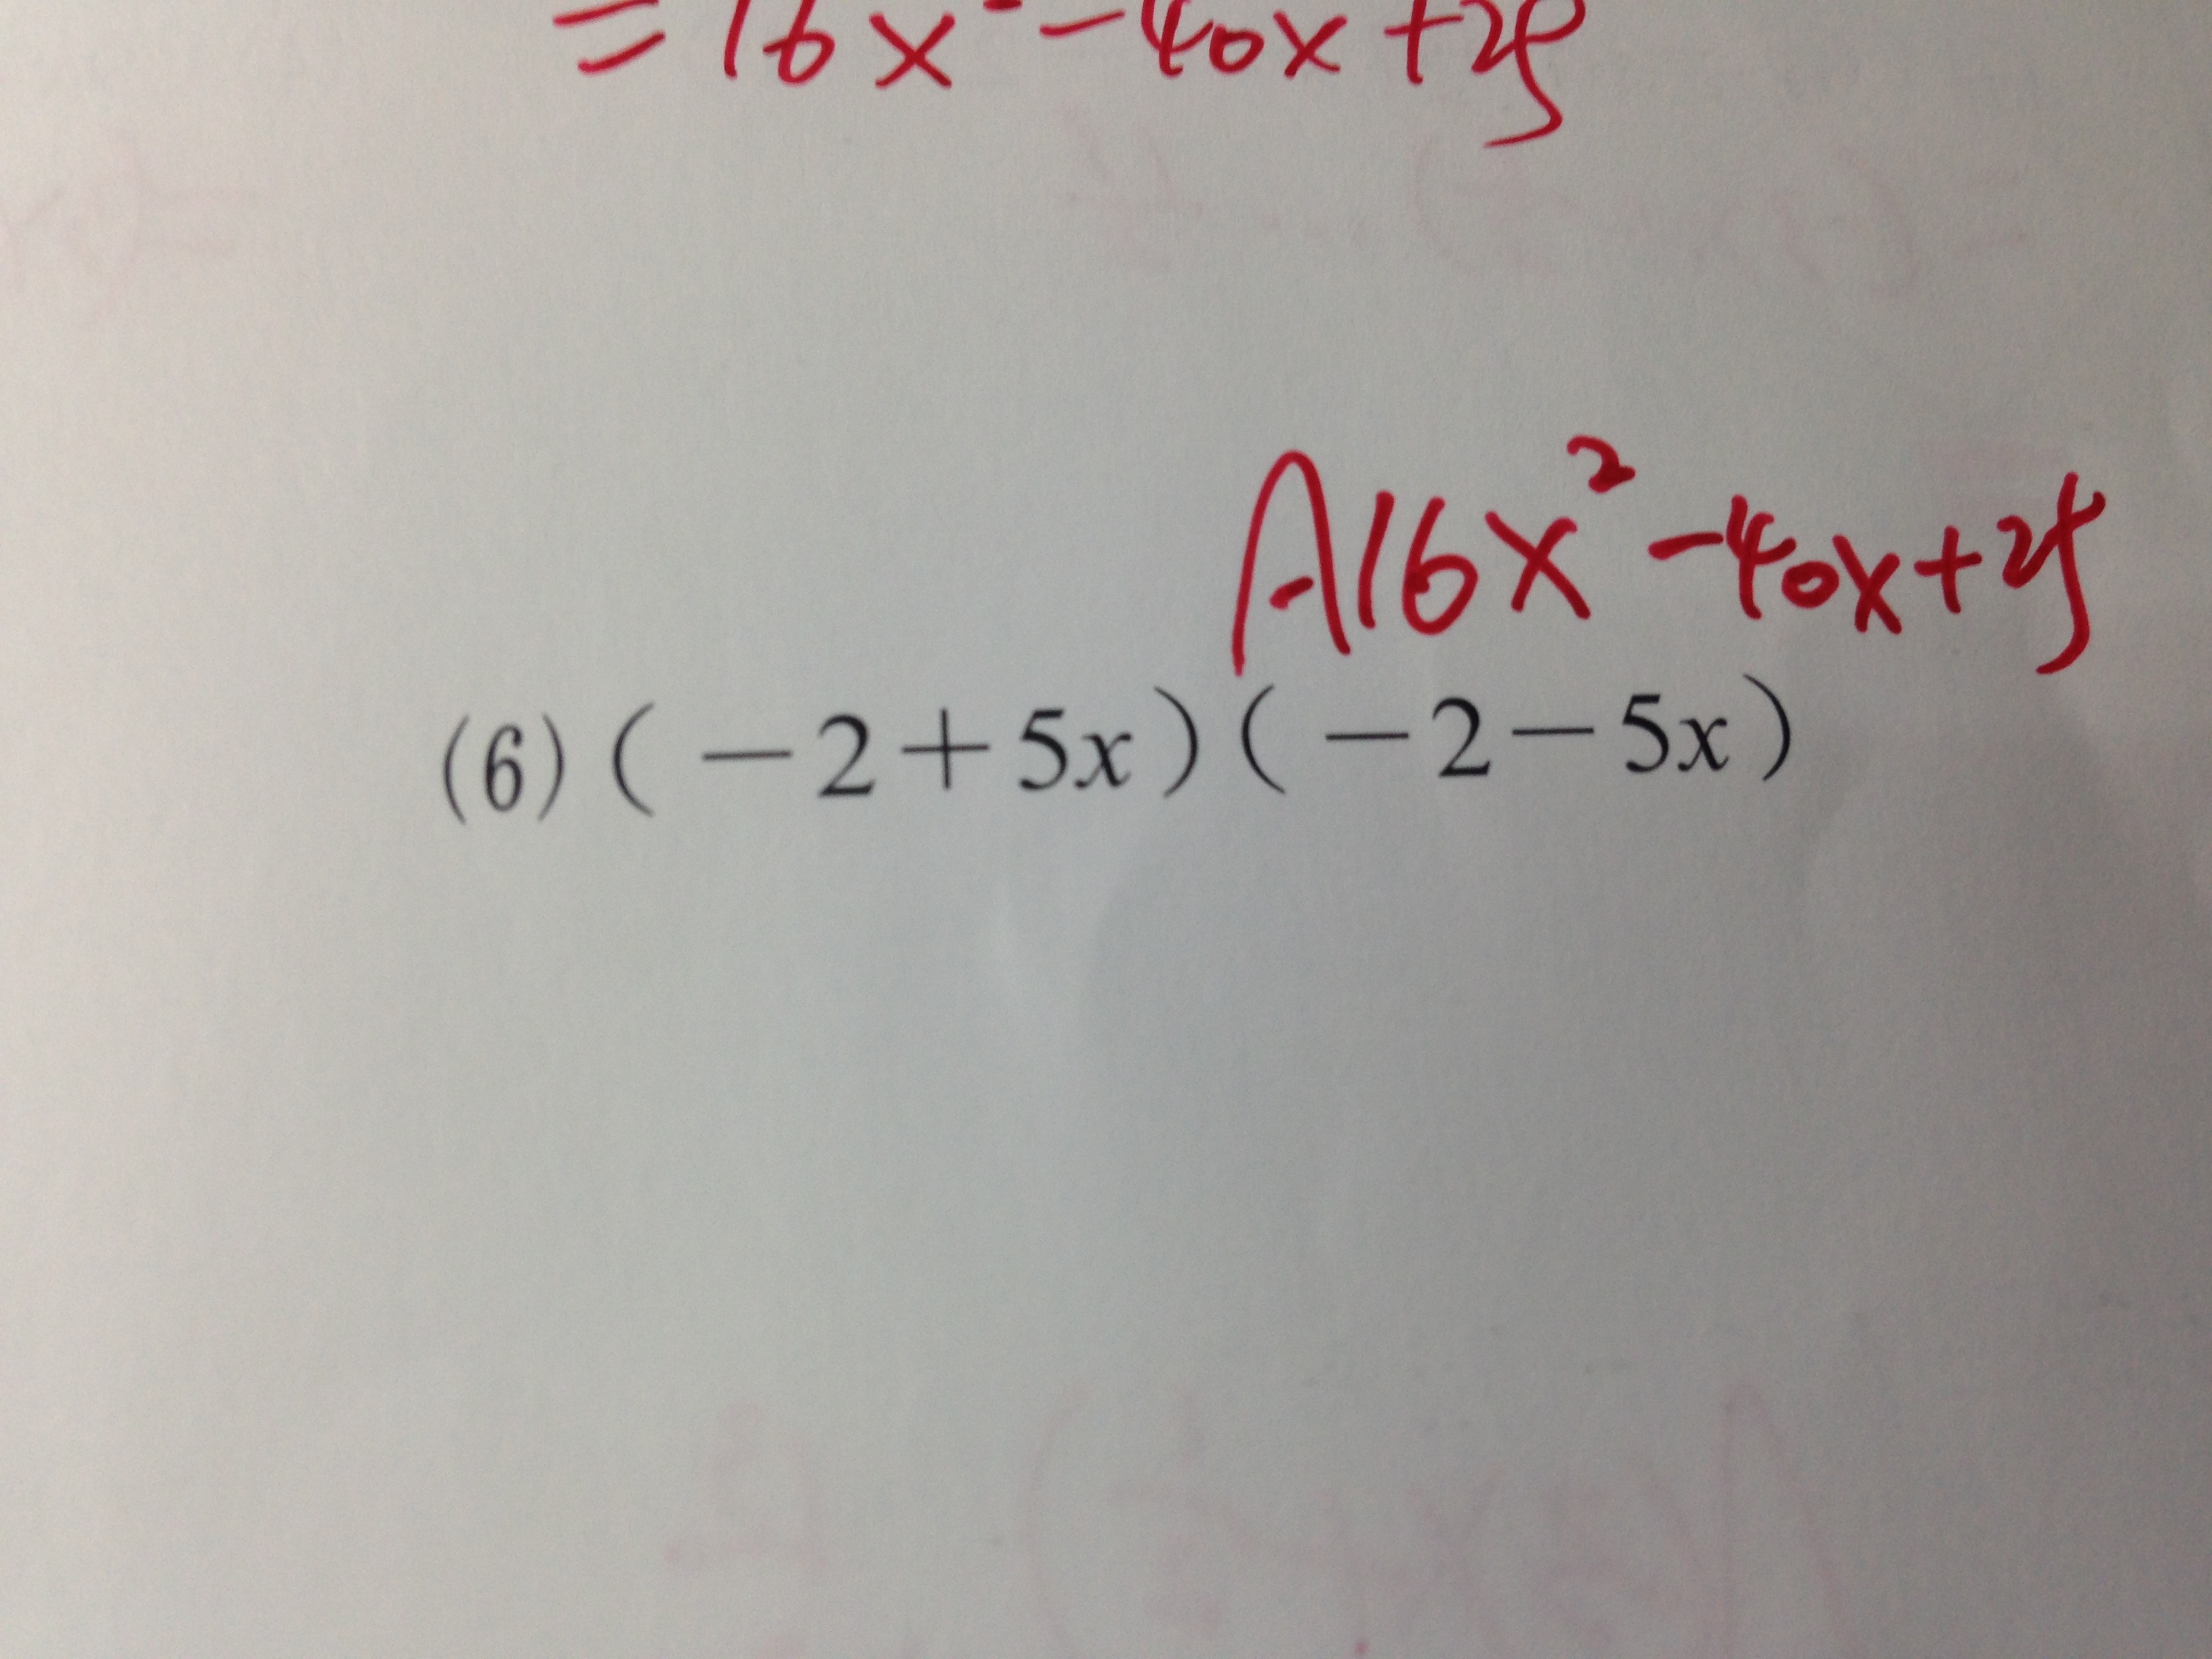 =16x²-40x+25
A16x²-40x+25
(6)(-2+5x)(-2-5x)